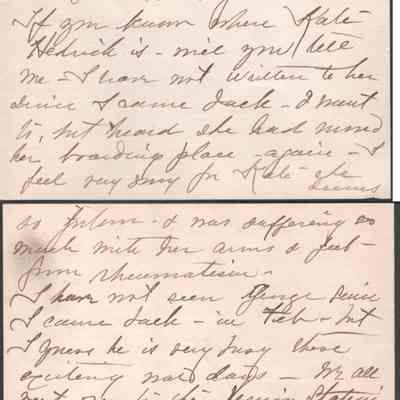 If you know where Kate
Hedrick is - will you tell
me - I have not written to her
since I came back - I want
to, but heard she had moved
her boarding place - again - I
feel very sorry for Kate she
seems
so forlorn - & was suffering so
much with her arms & feet -
from rheumatism -
I have not seen George since
I came back - in Feb - but
I guess he is very busy these
exciting war days - We all
went to the Union Station